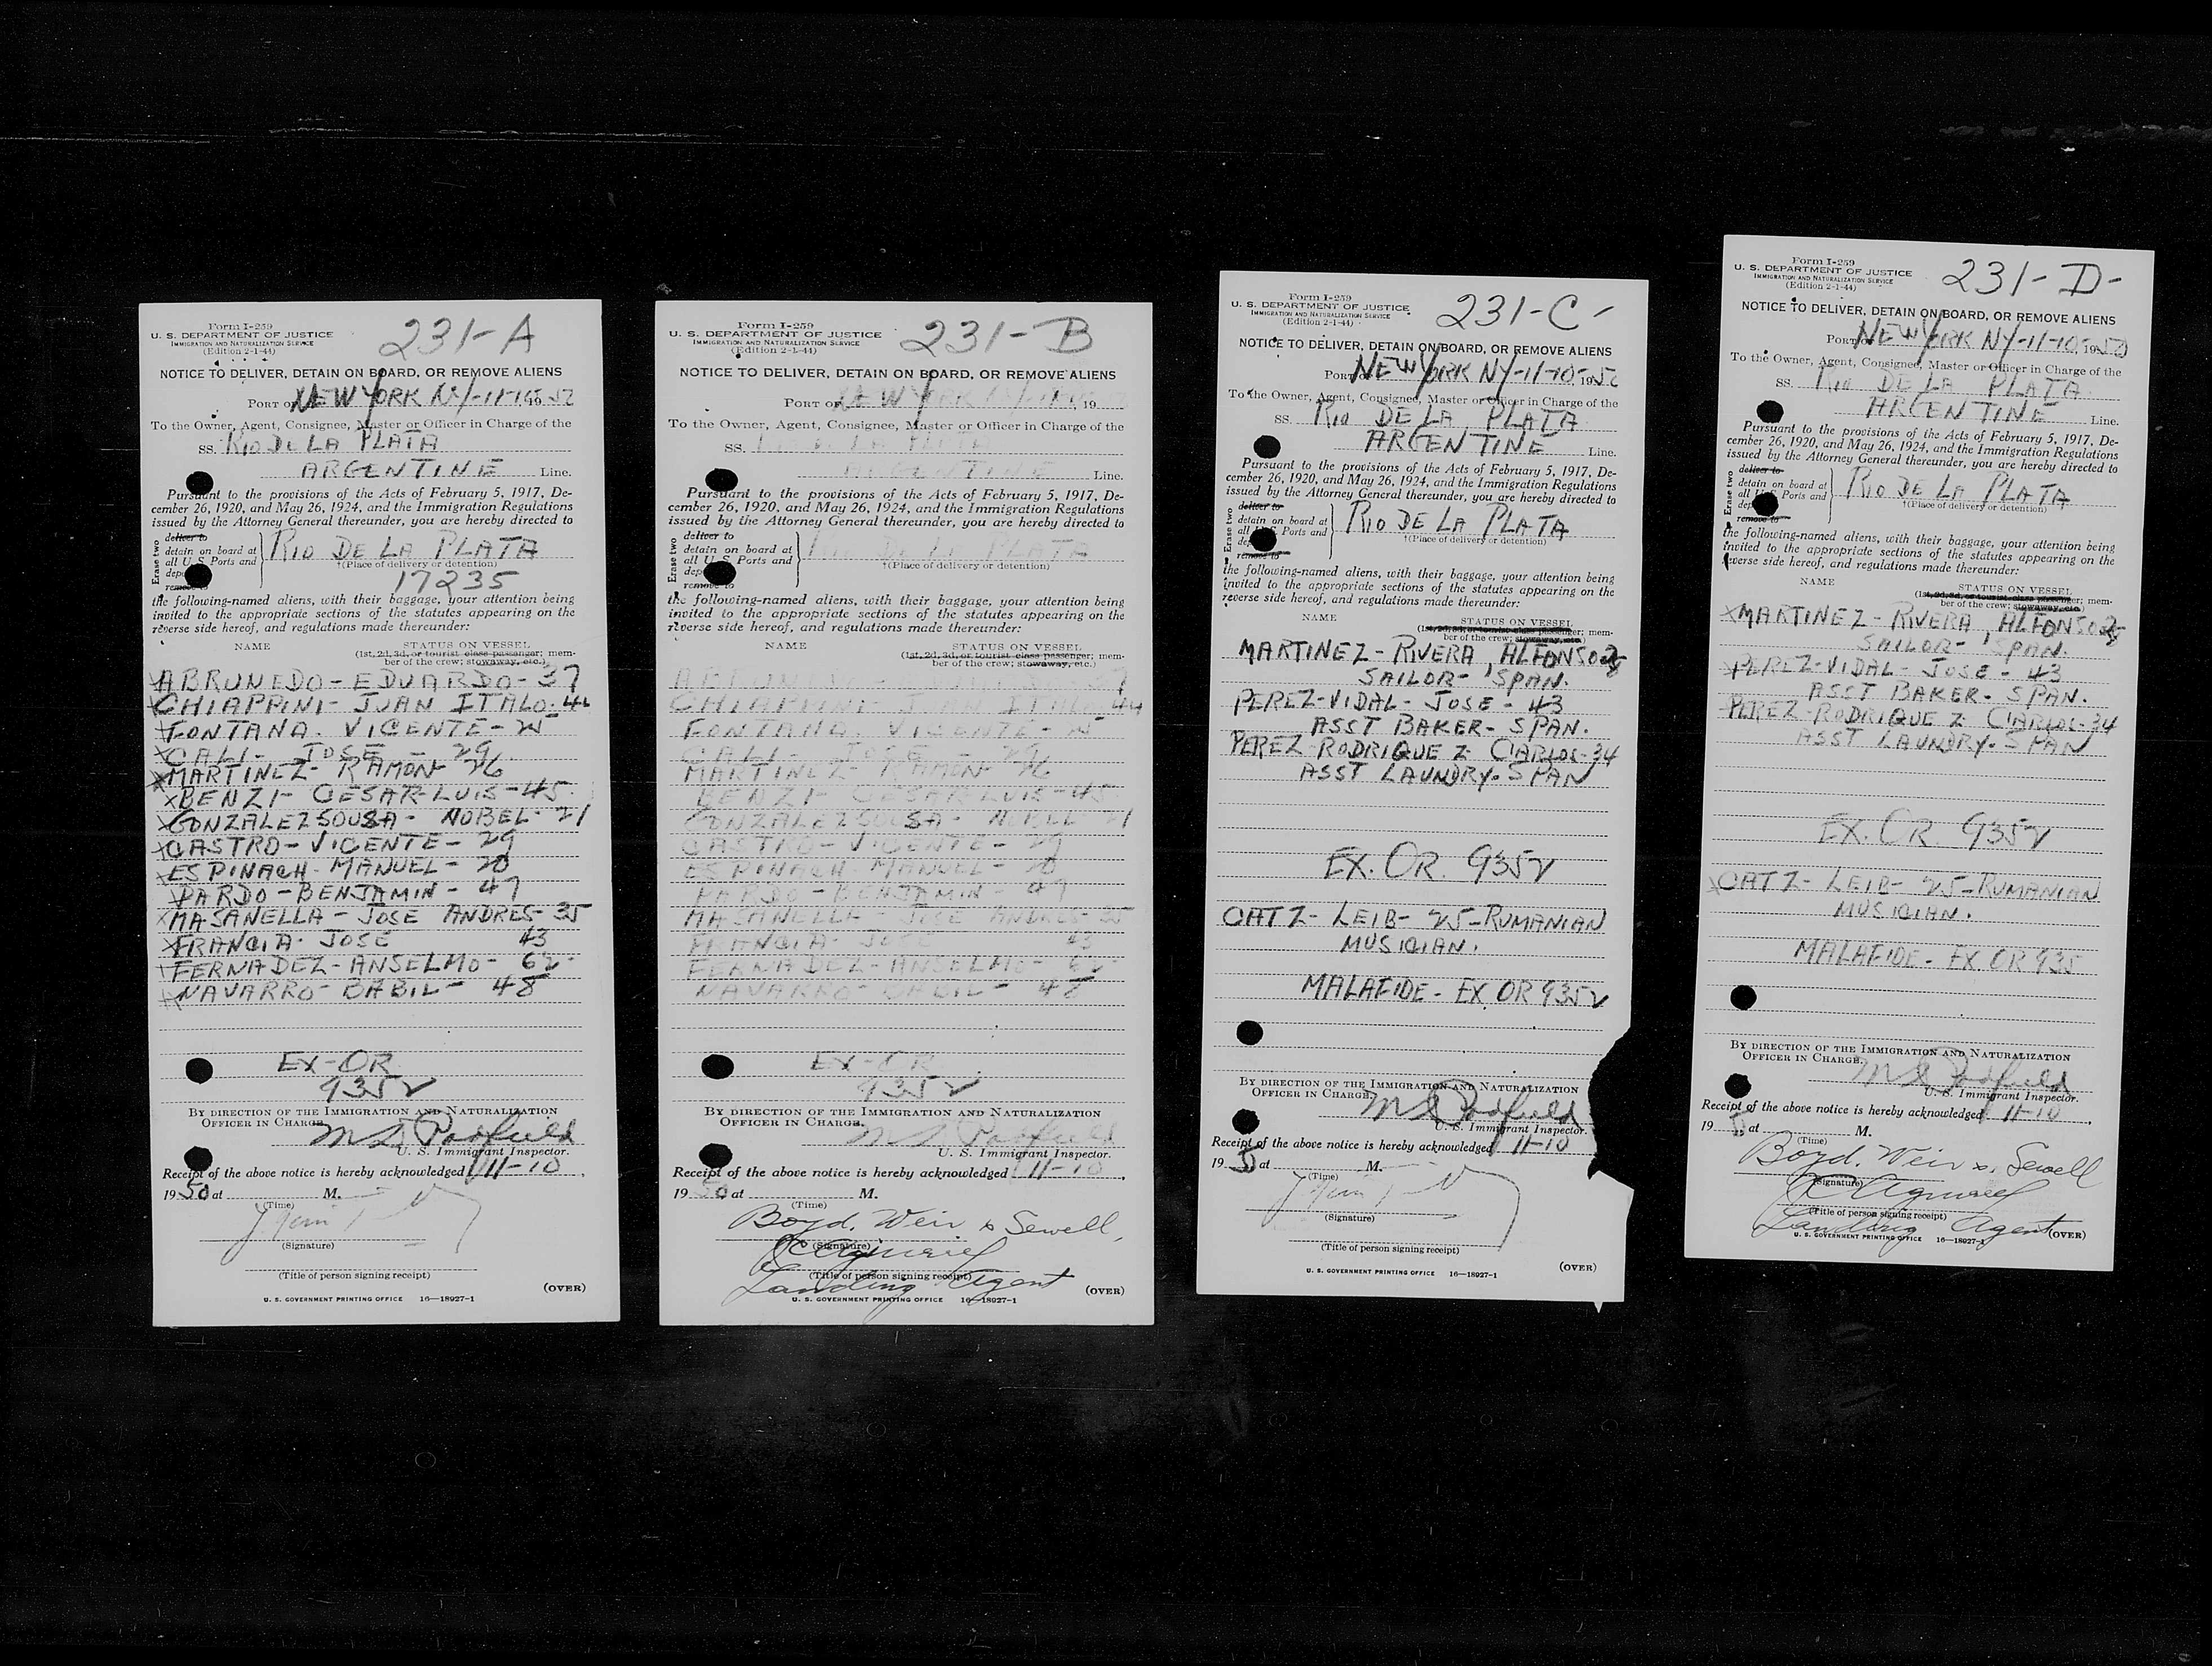 Form I-259
U. S. DEPARTMENT OF JUSTICE
IMMIGRATION AND NATURALIZATION SERVICE
(Edition 2-1-44)
231-A
NOTICE TO DELIVER, DETAIN ON BOARD, OR REMOVE ALIENS
PORT OF NEW YORK NY-11-10, 1950
To the Owner, Agent, Consignee, Master or Officer in Charge of the
SS. RIO DE LA PLATA
ARGENTINE Line.
Pursuant to the provisions of the Acts of February 5, 1917, De-
cember 26, 1920, and May 26, 1924, and the Immigration Regulations
issued by the Attorney General thereunder, you are hereby directed to
Erase two
deliver to
detain on board at
all U. S. Ports and
remove to
RIO DE LA PLATA
†(Place of delivery or detention)
17235
the following-named aliens, with their baggage, your attention being
invited to the appropriate sections of the statutes appearing on the
reverse side hereof, and regulations made thereunder:
NAME STATUS ON VESSEL
(1st, 2d, 3d, or tourist class passenger; mem-
ber of the crew; stowaway, etc.)
XABRUNEDO-EDUARDO-37
XCHIAPPINI-JUAN ITALO-44
XFONTANA. VICENTE-25
XCALI- JOSE - 29
XMARTINEZ- RAMON 26
XBENZI- CESAR-LUIS-45
XGONZALEZ SOUSA- NOBEL-21
XCASTRO-VICENTE- 29
XESPINACH-MANUEL- 20
XPARDO-BENJAMIN- 47
XMASANELLA-JOSE ANDRES-35
XFRANCIA-JOSE 43
XFERNADEZ-ANSELMO- 62-
XNAVARRO-BABIL- 48
EX-OR
9352
BY DIRECTION OF THE IMMIGRATION AND NATURALIZATION
OFFICER IN CHARGE.
U. S. Immigrant Inspector.
Receipt of the above notice is hereby acknowledged 11-10,
1950 at M.
(Time)
(Signature)
(Title of person signing receipt)
(OVER)
U. S. GOVERNMENT PRINTING OFFICE 16—18927-1
Form I-259
U. S. DEPARTMENT OF JUSTICE
IMMIGRATION AND NATURALIZATION SERVICE
(Edition 2-1-44)
231-B
NOTICE TO DELIVER, DETAIN ON BOARD, OR REMOVE ALIENS
PORT OF NEW YORK NY, 19
To the Owner, Agent, Consignee, Master or Officer in Charge of the
SS. LA PLATA
ARGENTINE Line.
Pursuant to the provisions of the Acts of February 5, 1917, De-
cember 26, 1920, and May 26, 1924, and the Immigration Regulations
issued by the Attorney General thereunder, you are hereby directed to
Erase two
deliver to
detain on board at
all U. S. Ports and
remove to
RIO DE LA PLATA
†(Place of delivery or detention)
the following-named aliens, with their baggage, your attention being
invited to the appropriate sections of the statutes appearing on the
reverse side hereof, and regulations made thereunder:
NAME STATUS ON VESSEL
(1st, 2d, 3d, or tourist class passenger; mem-
ber of the crew; stowaway, etc.)
CHIAPPINI- ITALO-44
FONTANA VICENTE-25
CALI- JOSE - 29
MARTINEZ- RAMON 26
BENZI- CESAR-LUIS-45
GONZALEZ SOUSA- NOBEL-21
CASTRO-VICENTE- 29
ESPINACH-MANUEL- 20
PARDO-BENJAMIN- 47
MASANELLA JOSE ANDRES-35
FRANCIA-JOSE 43
FERNADEZ-ANSELMO- 62-
NAVARRO-BABIL- 48
EX-OR
9352
BY DIRECTION OF THE IMMIGRATION AND NATURALIZATION
OFFICER IN CHARGE.
U. S. Immigrant Inspector.
Receipt of the above notice is hereby acknowledged 11-10,
1950 at M.
(Time)
Boyd, Weir & Sewell,
(Signature)
(Title of person signing receipt)
Landing Agent
(OVER)
U. S. GOVERNMENT PRINTING OFFICE 16—18927-1
Form I-259
U. S. DEPARTMENT OF JUSTICE
IMMIGRATION AND NATURALIZATION SERVICE
(Edition 2-1-44)
231-C-
NOTICE TO DELIVER, DETAIN ON BOARD, OR REMOVE ALIENS
PORT OF NEW YORK NY-11-10, 1950
To the Owner, Agent, Consignee, Master or Officer in Charge of the
SS. RIO DE LA PLATA
ARGENTINE Line.
Pursuant to the provisions of the Acts of February 5, 1917, De-
cember 26, 1920, and May 26, 1924, and the Immigration Regulations
issued by the Attorney General thereunder, you are hereby directed to
Erase two
deliver to
detain on board at
all U. S. Ports and
remove to
RIO DE LA PLATA
†(Place of delivery or detention)
the following-named aliens, with their baggage, your attention being
invited to the appropriate sections of the statutes appearing on the
reverse side hereof, and regulations made thereunder:
NAME STATUS ON VESSEL
(1st, 2d, 3d, or tourist class passenger; mem-
ber of the crew; stowaway, etc.)
MARTINEZ-RIVERA, ALFONSO
SAILOR- SPAN.
PEREZ-VIDAL- JOSE - 43
ASST BAKER- SPAN.
PEREZ-RODRIQUEZ CARLOS-34
ASST LAUNDRY-SPAN
EX. OR. 9352
CATZ- LEIB- 25-RUMANIAN
MUSICIAN.
MALAFIDE- EX OR 9352
BY DIRECTION OF THE IMMIGRATION AND NATURALIZATION
OFFICER IN CHARGE.
U. S. Immigrant Inspector.
Receipt of the above notice is hereby acknowledged 11-10
1950 at M.
(Time)
(Signature)
(Title of person signing receipt)
(OVER)
U. S. GOVERNMENT PRINTING OFFICE 16—18927-1
Form I-259
U. S. DEPARTMENT OF JUSTICE
IMMIGRATION AND NATURALIZATION SERVICE
(Edition 2-1-44)
231-D-
NOTICE TO DELIVER, DETAIN ON BOARD, OR REMOVE ALIENS
PORT OF NEW YORK NY-11-10, 1950
To the Owner, Agent, Consignee, Master or Officer in Charge of the
SS. RIO DE LA PLATA
ARGENTINE Line.
Pursuant to the provisions of the Acts of February 5, 1917, De-
cember 26, 1920, and May 26, 1924, and the Immigration Regulations
issued by the Attorney General thereunder, you are hereby directed to
Erase two
deliver to
detain on board at
all U. S. Ports and
remove to
RIO DE LA PLATA
†(Place of delivery or detention)
the following-named aliens, with their baggage, your attention being
invited to the appropriate sections of the statutes appearing on the
reverse side hereof, and regulations made thereunder:
NAME STATUS ON VESSEL
(1st, 2d, 3d, or tourist class passenger; mem-
ber of the crew; stowaway, etc.)
XMARTINEZ-RIVERA, ALFONSO
SAILOR- SPAN.
XPEREZ-VIDAL- JOSE - 43
ASST BAKER- SPAN.
PEREZ-RODRIQUEZ CARLOS-34
ASST LAUNDRY-SPAN
EX. OR. 9352
XCATZ- LEIB- 25-RUMANIAN
MUSICIAN.
MALAFIDE- EX. OR 935
BY DIRECTION OF THE IMMIGRATION AND NATURALIZATION
OFFICER IN CHARGE.
U. S. Immigrant Inspector.
Receipt of the above notice is hereby acknowledged 11-10,
19 at M.
(Time)
Boyd, Weir & Sewell
(Signature)
(Title of person signing receipt)
Landing Agent
U. S. GOVERNMENT PRINTING OFFICE 16—18927-1 (OVER)